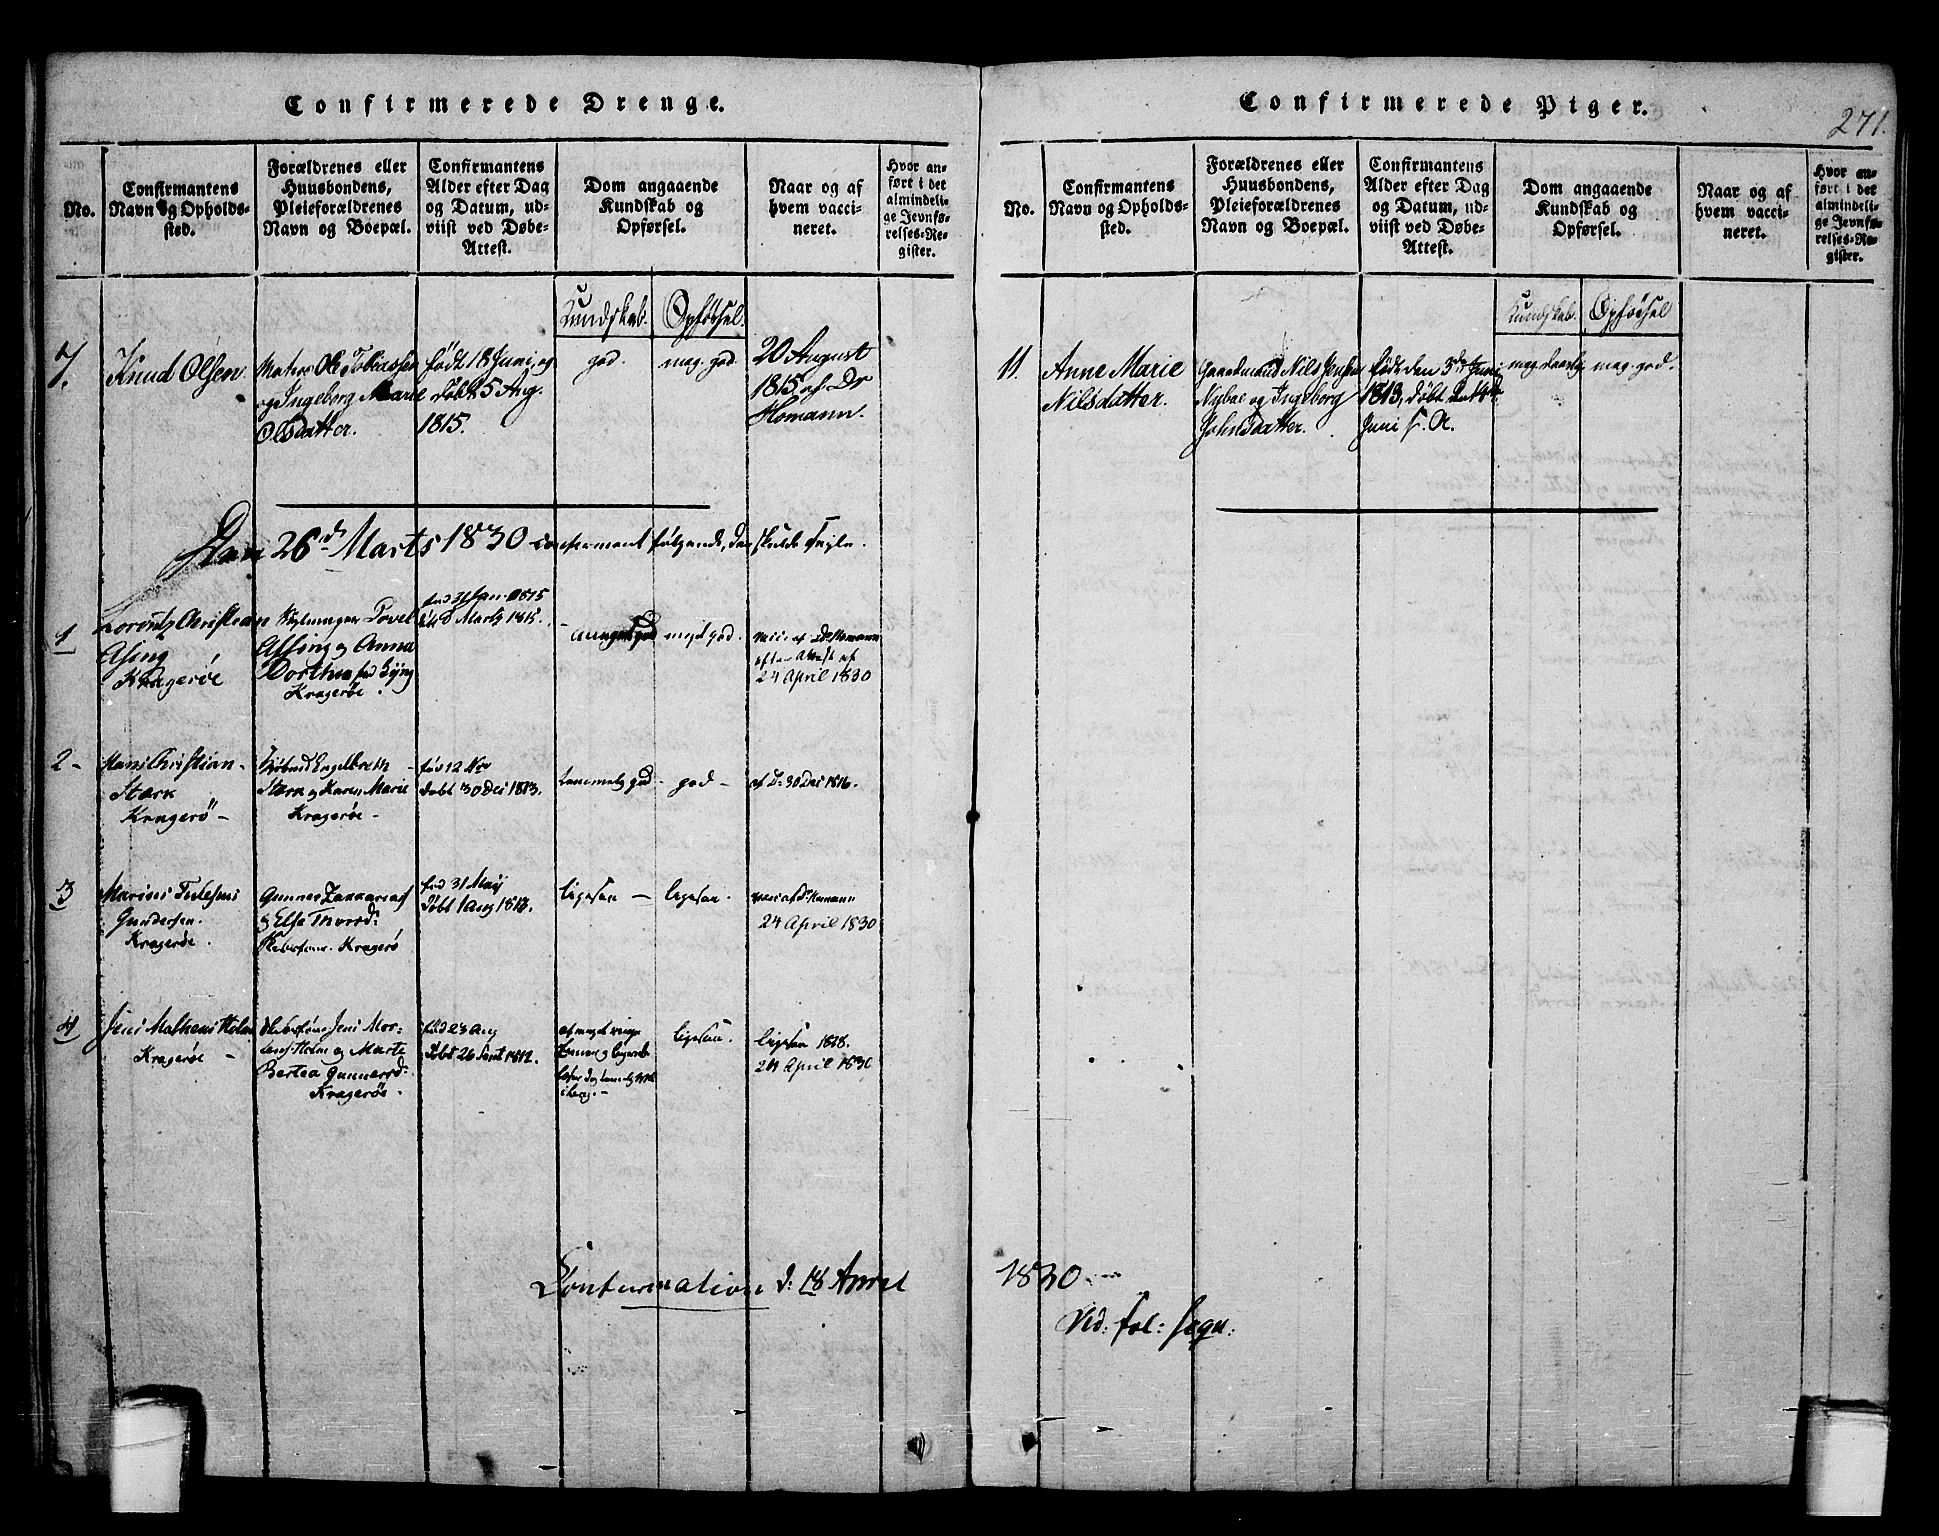 Confirmerede Drenge.
No.
Confirmantens
Navn og Opholds-
sted.
Forældrenes eller
Huusbondens,
Pleieforældrenes
Navn og Boepæl.
Confirmantens
Alder efter Dag
og Datum, ud-
viist ved Døbe-
Attest.
Dom angaaende
Kundskab og
Opførsel.
Naar og af
hvem vacci-
neret.
Hvor an-
ført i det
almindeli-
ge Jevnfø-
relses-Re-
gister.
Kundskab.
Opförsel.
7.
Knud Olsen
Matros Ole Tobiassen
og Ingeborg Marie
Olsdatter.
født 18 Juni, og
døbt 5 Aug.
1815.
god.
meg. god
20 August
1815 af Dr
Homann.
Den 26d Marts 1830 confirmert følgende, der skulde seyle.
1
Lorentz Christian
Assing
Kragerøe
Povel
Assing og Anna
Dorthea fød
Kragerøe.
fød 31 Jan. 1815
døbt 8 Marts 1815.
god
meget god.
vacc. af Dr Homann
efter Attest af
24 April 1830
2 -
Hans Christian
Stærk
Kragerö -
Engelbreth
Stærk og Karen Marie
Kragerøe -
fød 12 Nov
døbt 30 Dec 1813.
temmelig god
god -
af D: 30 Dec 1816.
3
Marius
Gundersen.
Kragerøe.
Gunner Zakkariass
og Else Thorsd:
Kragerö
fød 31 May
døbt 1 Aug 1813.
ligesaa -
ligesaa.
vacc af Dr Homann
24 April 1830
4
Jens Mathias Holm
Kragerøe -
Jens Mor-
tens Holm og Marte
Bertea Gunnersd:
Kragerøe.
fød 23 Aug
døbt 26 Sept 1812.
af meget ringe
ligesaa.
ligesaa 1828.
24 April 1830
Confirmation d: 18 April 1830
Vid: fol: seqv:
Confirmerede Piger.
271.
No.
Confirmantens
Navn og Opholds-
sted.
Forældrenes eller
Huusbondens,
Pleieforældrenes
Navn og Boepæl.
Confirmantens
Alder efter Dag
og Datum, ud-
viist ved Døbe-
Attest.
Dom angaaende
Kundskab og
Opførsel.
Naar og af
hvem vacci-
neret.
Hvor an-
ført i det
almindeli-
ge Jevnfø-
relses-Re-
gister.
Kundskab.
Opförsel
11.
Anne Marie
Nilsdatter.
Gaardmand Nils Jensen
Nybøe og Ingeborg
Johnsdatter.
født den 3die Juni
1813, døbt
Juni s. A.
meg. daarlig
meg. god.